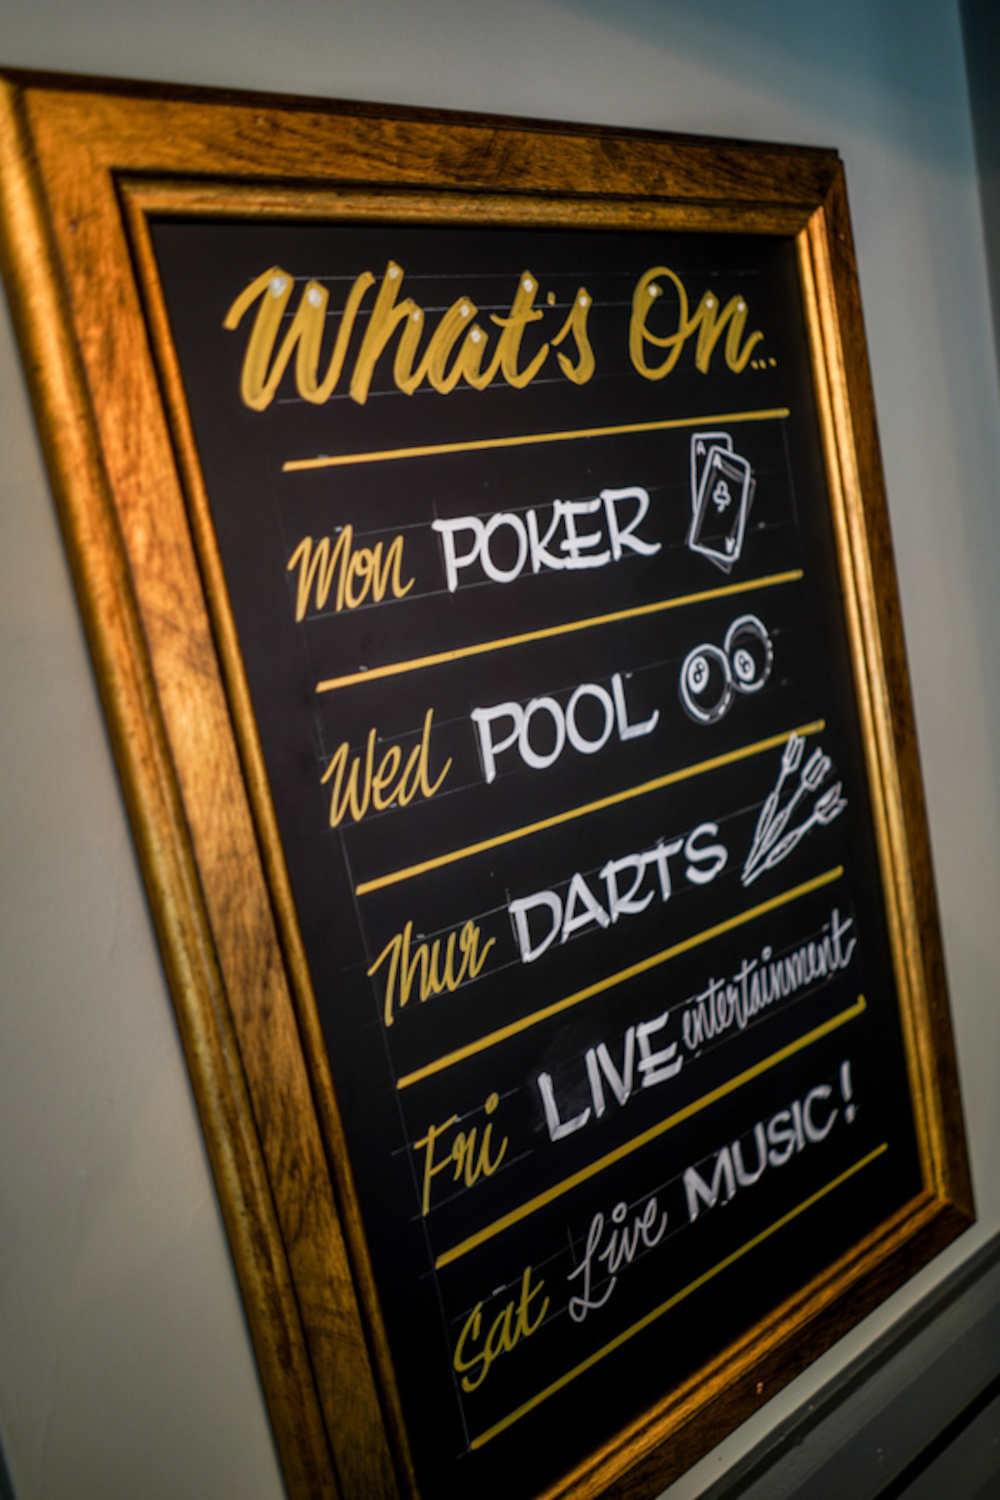 What's On...
Mon POKER
Wed POOL
Thur DARTS
Fri LIVE entertainment
Sat Live MUSIC!